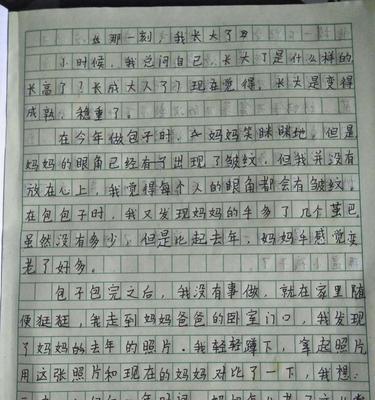 《那一刻 我长大了》
小时候，我总问自己，长大了是什么样的
长高了？长成大人了？现在觉得，长大是变得
成熟、稳重了。
在今年做包子时，妈妈笑眯眯地，但是
妈妈的眼角已经有出现了皱纹，但我并没有
放在心上，我觉得每个人的眼角都会有皱纹，
在包包子时，我又发现妈妈的手多了几个茧巴
虽然没有多少，但是比起去年，妈妈手感觉变
老了好多。
包子包完之后，我没有事做，就在家里随
便逛逛，我走到妈妈爸爸的卧室门口，我发现
了妈妈的去年的照片。我轻轻蹲下，拿起照片
用这张照片和现在的妈妈对比了一下，我想：